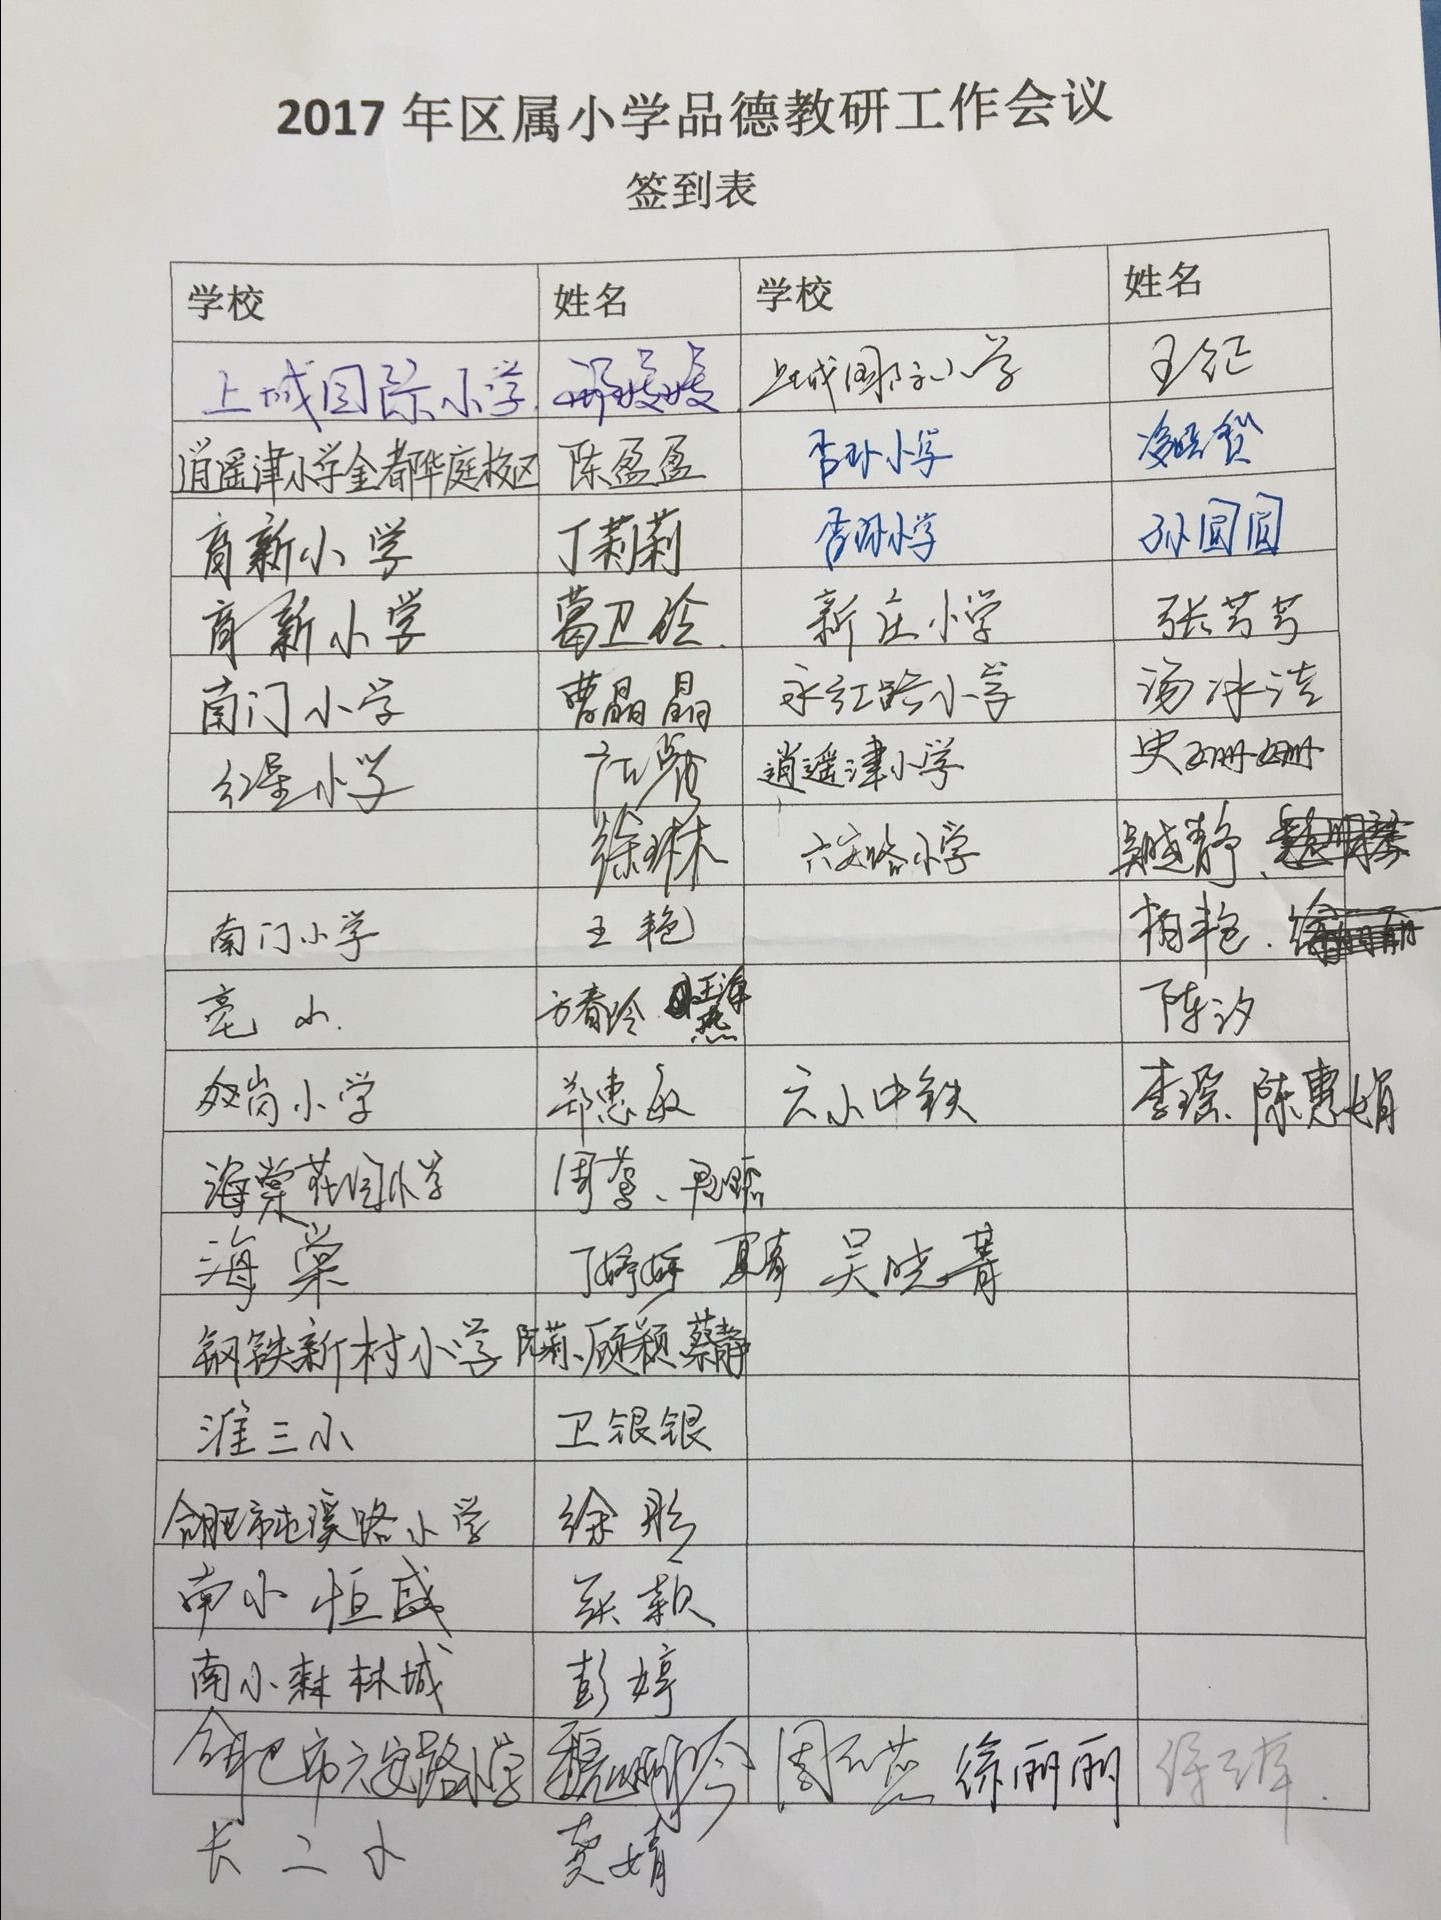 2017年区属小学品德教研工作会议
签到表
学校 姓名 学校 姓名
上城国际小学 媛媛 上城国际小学 王征
逍遥津小学金都华庭校区 陈盈盈 小学
育新小学 丁莉莉 小学 孙圆圆
育新小学 葛卫 新庄小学 张芳芳
南门小学 曹晶晶 永红路小学 汤冰洁
红星小学 逍遥津小学 史珊珊
徐琳 六安路小学 静、
南门小学 王艳 柏艳.
亳小. 方春玲 陈汐
双岗小学 郑惠敏 六小中铁 李瑶、陈惠娟
海棠花园小学 周莺、
海棠 丁婷婷 夏青 吴晓菁
钢铁新村小学 阮莉、顾颖、蔡静
淮三小 卫银银
合肥市屯溪路小学 徐彤
南小恒盛 张颖
南小森林城 彭婷
合肥市六安路小学 魏 周 徐丽丽
长二小 窦婧